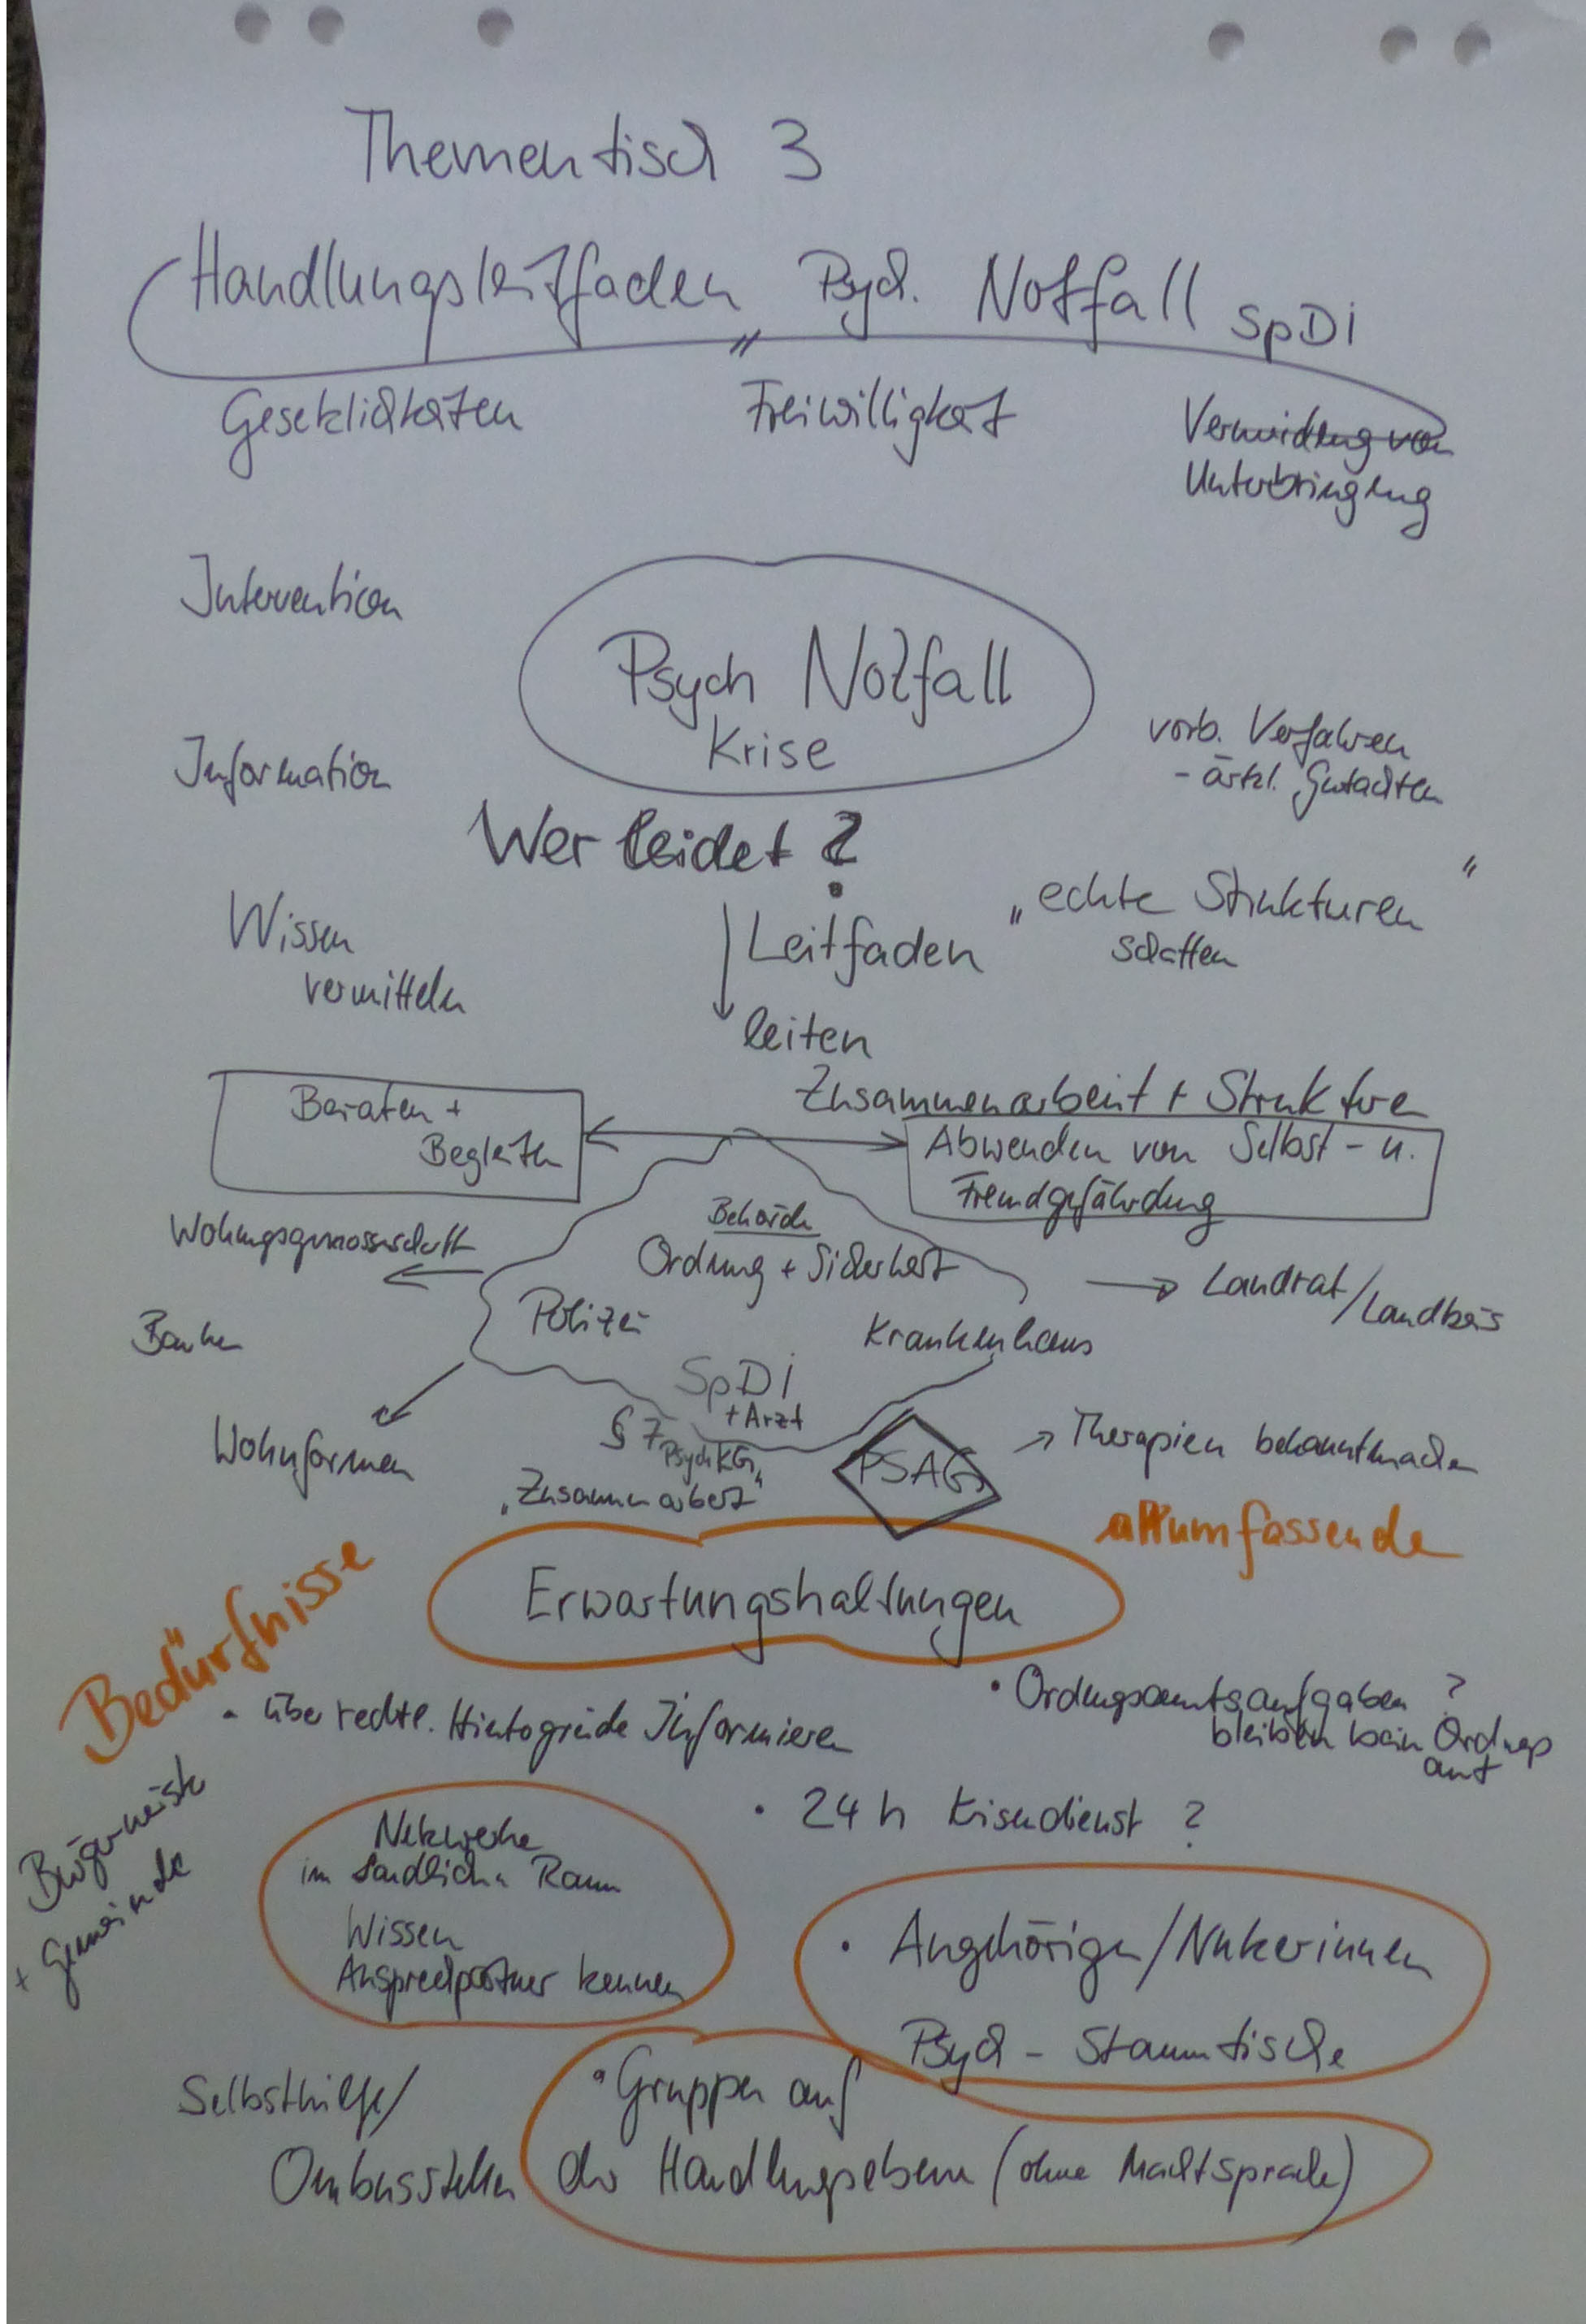 Thementisch 3
Handlungsleitfaden Psych. Notfall SpDi
Gesetzlichkeiten
Freiwilligkeit
Vermeidung von
Unterbringung
Intervention
Psych Notfall
Krise
Information
vorb. Verfahren
- ärztl. Gutachten
Wer leidet ?
Wissen
vermitteln
Leitfaden
leiten
„echte Strukturen"
schaffen
Beraten +
Begleiten
Zusammenarbeit + Strukturen
Abwenden von Selbst- u.
Fremdgefährdung
Wohnungsgenossenschaft
Behörde
Ordnung + Sicherheit
Polizei
Krankenhaus
Landrat/Landkreis
Banken
SpDi
+ Arzt
Wohnformen
§ 7 PsychKG
„Zusammenarbeit"
PSAG
Therapien bekanntmachen
allumfassende
Erwartungshaltungen
Bedürfnisse
• über rechtl. Hintergründe Informieren
• Ordnungsamtsaufgaben ?
bleiben beim Ordnungs
amt
Bürgermeister
+ Gemeinde
• 24 h Krisendienst ?
Netzwerke
im ländlichen Raum
Wissen
Ansprechpartner kennen
• Angehörigen/Nutzerinnen
Psych - Stammtische
Selbsthilfe/
Ombusstellen
• Gruppen auf
der Handlungsebene (ohne Machtsprache)